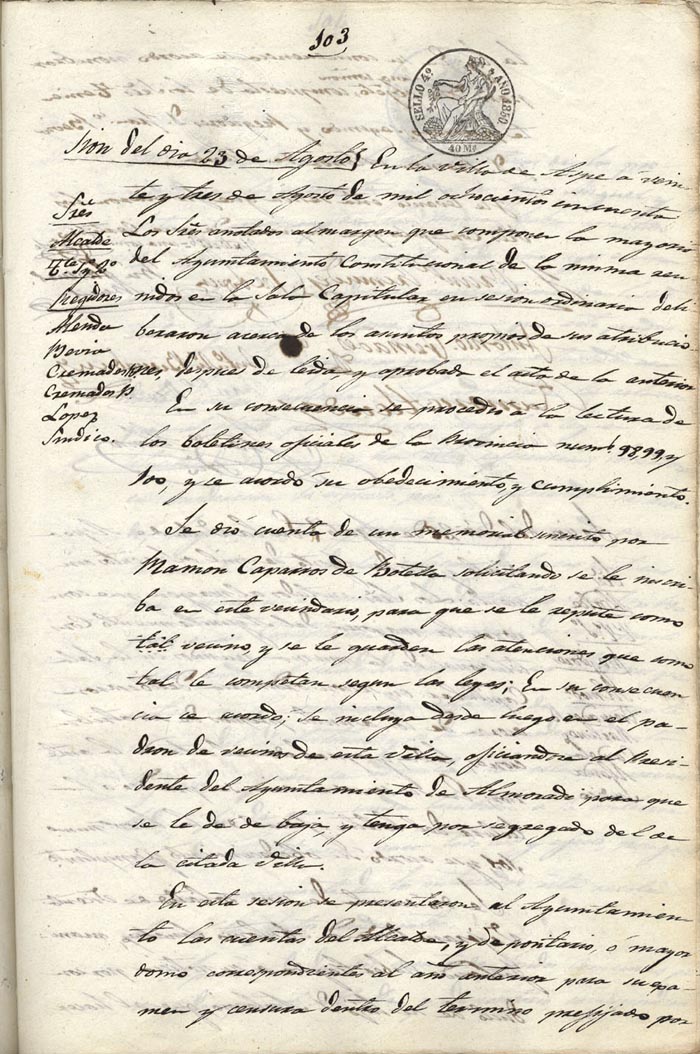 103
SELLO 4º AÑO 1850
40 Ms
Sion del dia 23 de Agosto
En la Villa de Aspe á vein
te y tres de Agosto de mil ochocientos cincuenta
Sres
Alcalde
Tte 1º y 2º
Regidores
Alenda
Pavia
Cremades
Cremades P.
Lopez
Sindico.
Los Sres anotados al margen que componen la mayoria
del Ayuntamiento Constitucional de la misma reu
nidos en la Sala Capitular en sesion ordinaria deli
beraron acerca de los asuntos propios de sus atribucio
nes, despues de leida y aprobada el acta de la anterior
En su consecuencia se procedió a la lectura de
los boletines oficiales de la Provincia nums. 98, 99, y
100, y se acordó su obedecimiento, y cumplimiento.
Se dió cuenta de un memorial suscrito por
Ramon Caparros de Botella solicitando se le inscri
ba en este vecindario, para que se le repute como
tal vecino, y se le guarden las atenciones que como
tal le competan segun las leyes; En su consecuen
cia se acordo; Se incluya desde luego en el pa
dron de vecinos de esta Villa, oficiandose al Presi
dente del Ayuntamiento de Almoradi para que
se le de de baja y tenga por segregado del de
la citada Villa.
En esta sesion se presentaron al Ayuntamien
to las cuentas del Alcalde, y depositario, ó mayor
domo correspondientes al año anterior para su exa
men y censura dentro del termino prefijado por